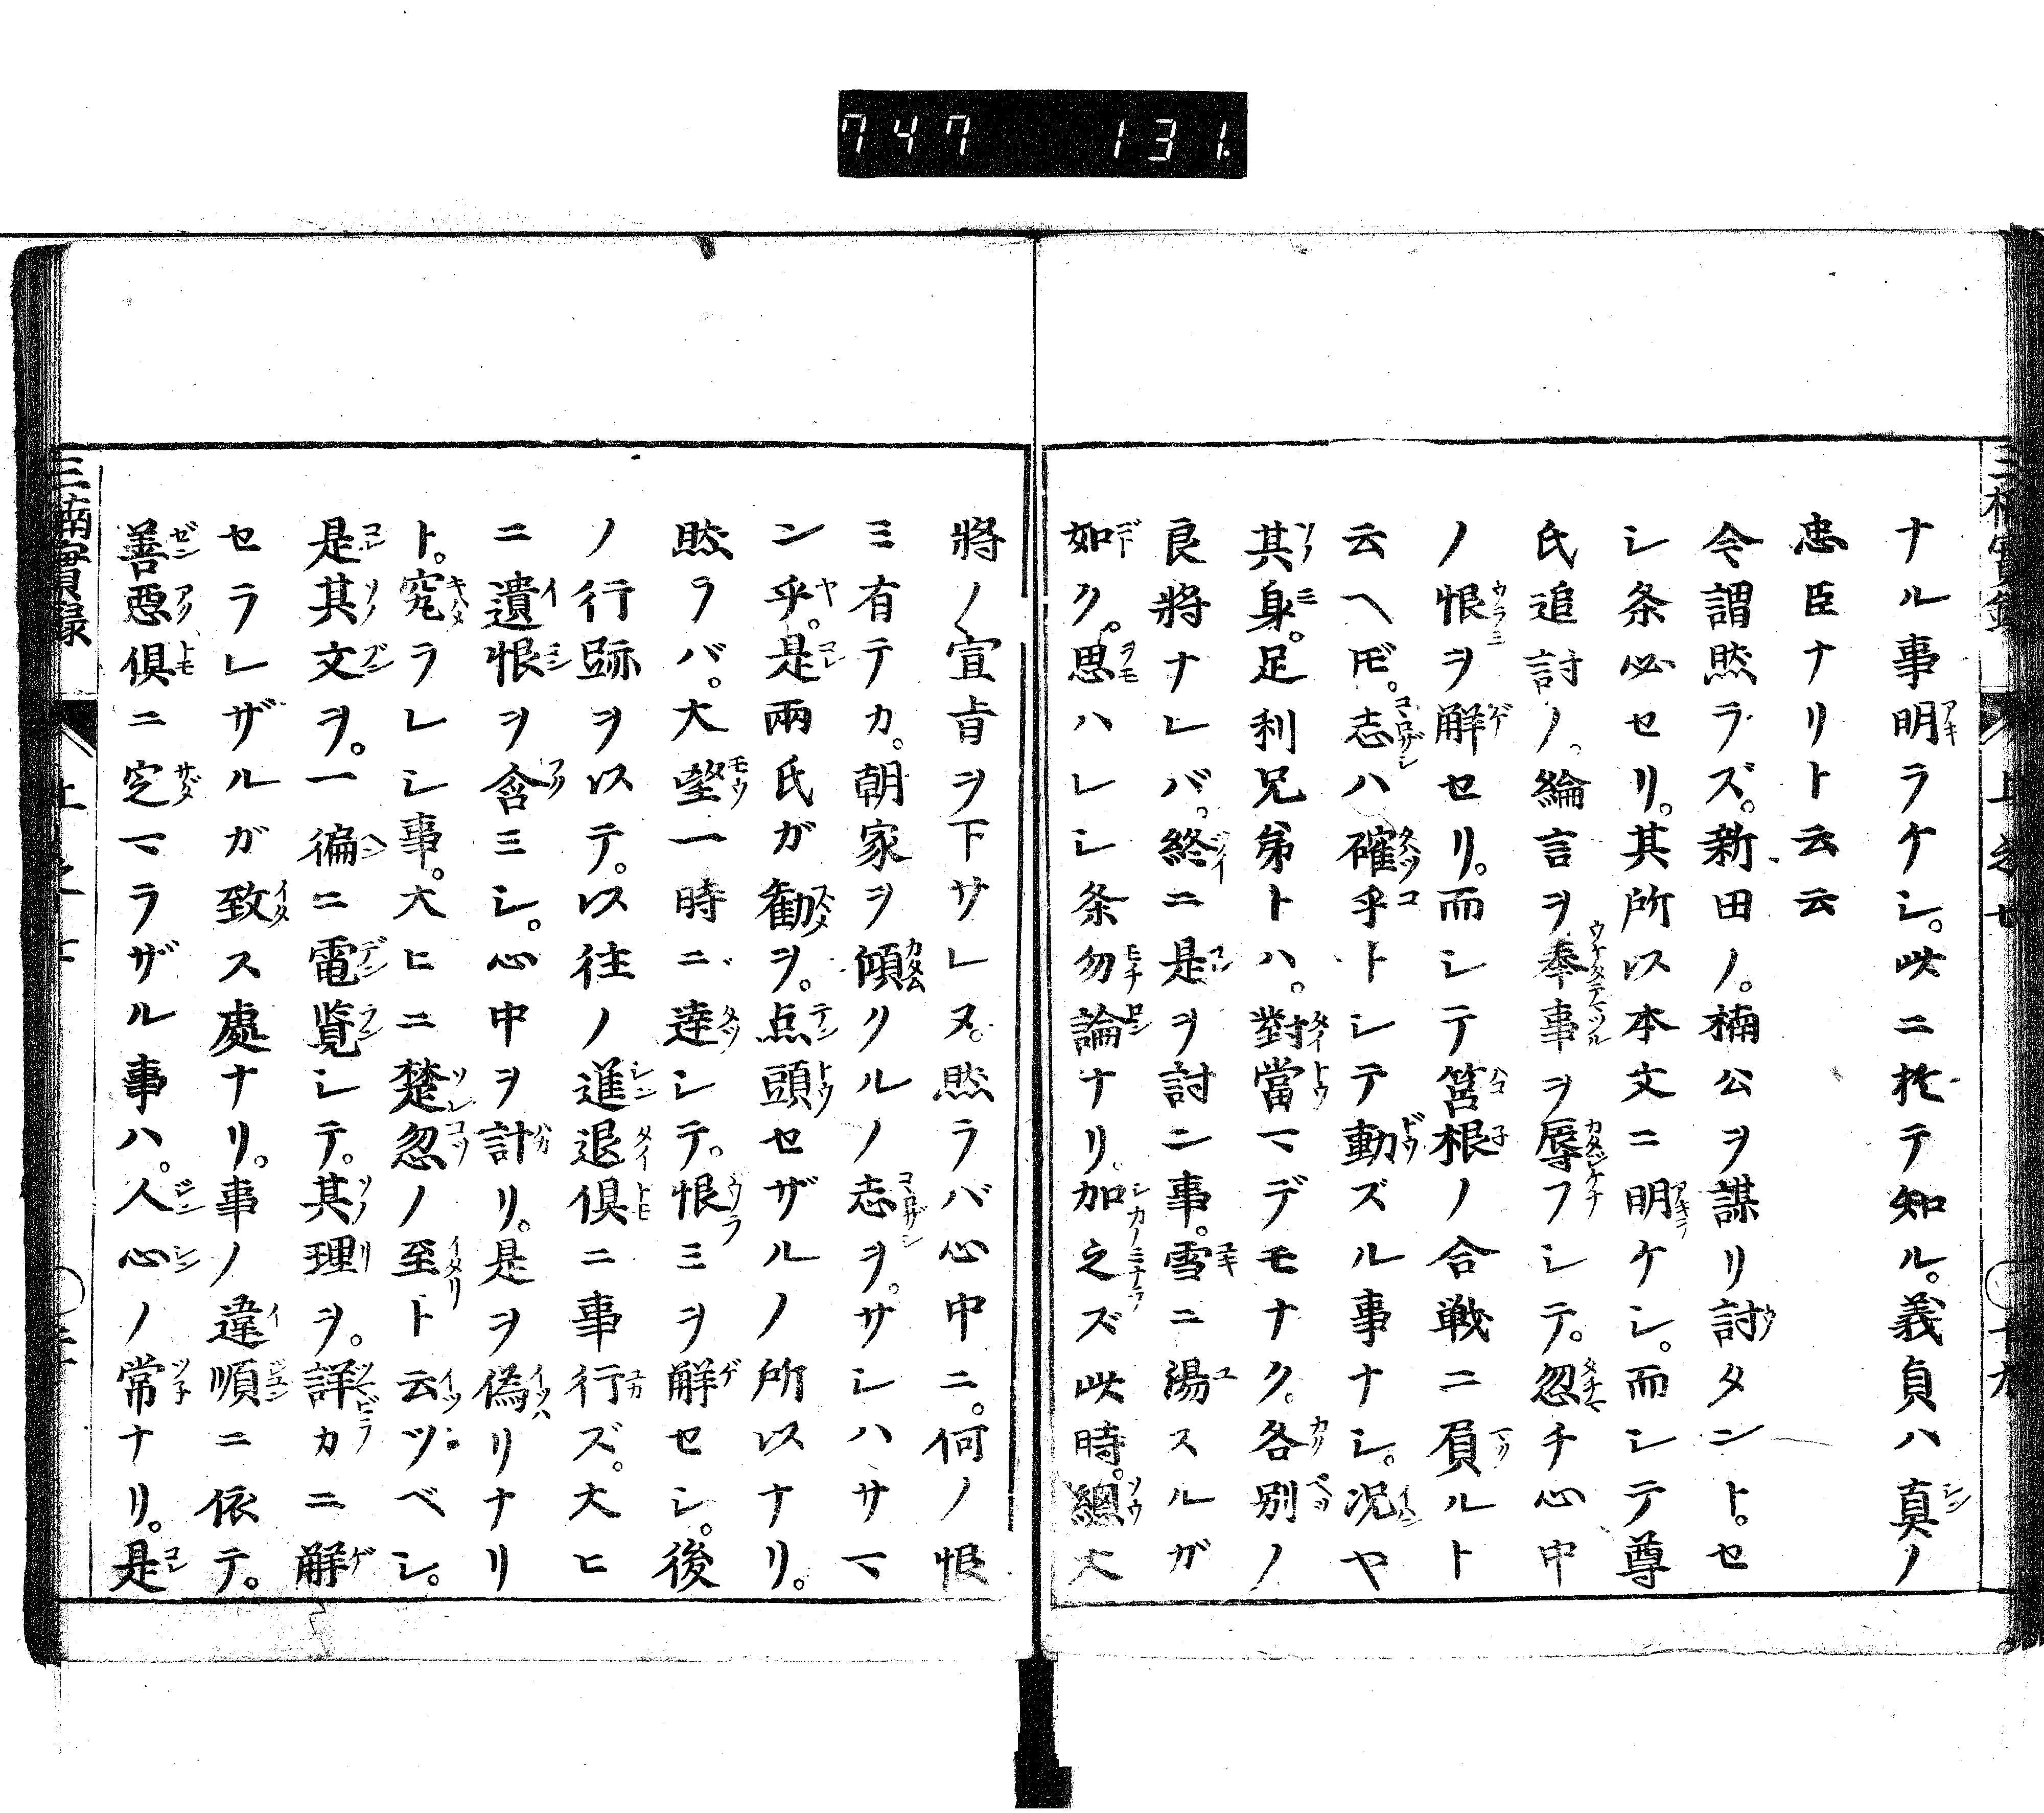 747 131.
ナル事明ラケシ。此ニ於テ知ル。義貞ハ真ノ
忠臣ナリト云云
今謂然ラズ。新田ノ。楠公ヲ謀リ討タント。セ
シ条必セリ。其所以本文ニ明ケシ。而シテ尊
氏追討ノ。綸言ヲ奉事ヲ辱フシテ。忽チ心中
ノ恨ヲ解セリ。而シテ筥根ノ合戦ニ負ルト
云ヘ𪜈。志ハ確乎トシテ動ズル事ナシ。況ヤ
其身。足利兄弟トハ。對當マデモナク。各別ノ
良將ナレバ。終ニ是ヲ討ン事。雪ニ湯スルガ
如ク。思ハレシ条勿論ナリ。加之ズ此時。總大
將ノ宣旨ヲ下サレヌ。然ラバ心中ニ。何ノ恨
ミ有テカ。朝家ヲ傾クルノ志ヲ。サシハサマ
ン乎。是兩氏ガ勧ヲ。点頭セザルノ所以ナリ。
然ラバ。大望一時ニ達シテ。恨ミヲ解セシ。後
ノ行跡ヲ以テ。以往ノ進退倶ニ事行ズ。大ヒ
ニ遺恨ヲ含ミシ。心中ヲ計リ。是ヲ偽リナリ
ト。究ラレシ事。大ヒニ楚忽ノ至ト云ツベシ。
是其文ヲ。一徧ニ電覧シテ。其理ヲ。詳カニ解
セラレザルガ致ス處ナリ。事ノ違順ニ依テ。
善惡倶ニ定マラザル事ハ。人心ノ常ナリ。是
三楠實録